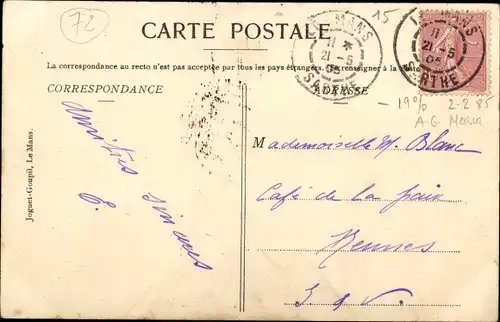 72
15
CARTE POSTALE
LE MANS
11 *
21 - 5
05
SARTHE
LE MANS
11
21 - 5
05
SARTHE
La correspondance au recto n'est pas acceptée par tous les pays étrangers. Se renseigner à la
CORRESPONDANCE
ADRESSE
2-2 85
A.G.
amitiés sincères
E.
Mademoiselle M. Blanc
Café de la paix
Rennes
I & V.
Joguet-Goupil, Le Mans.